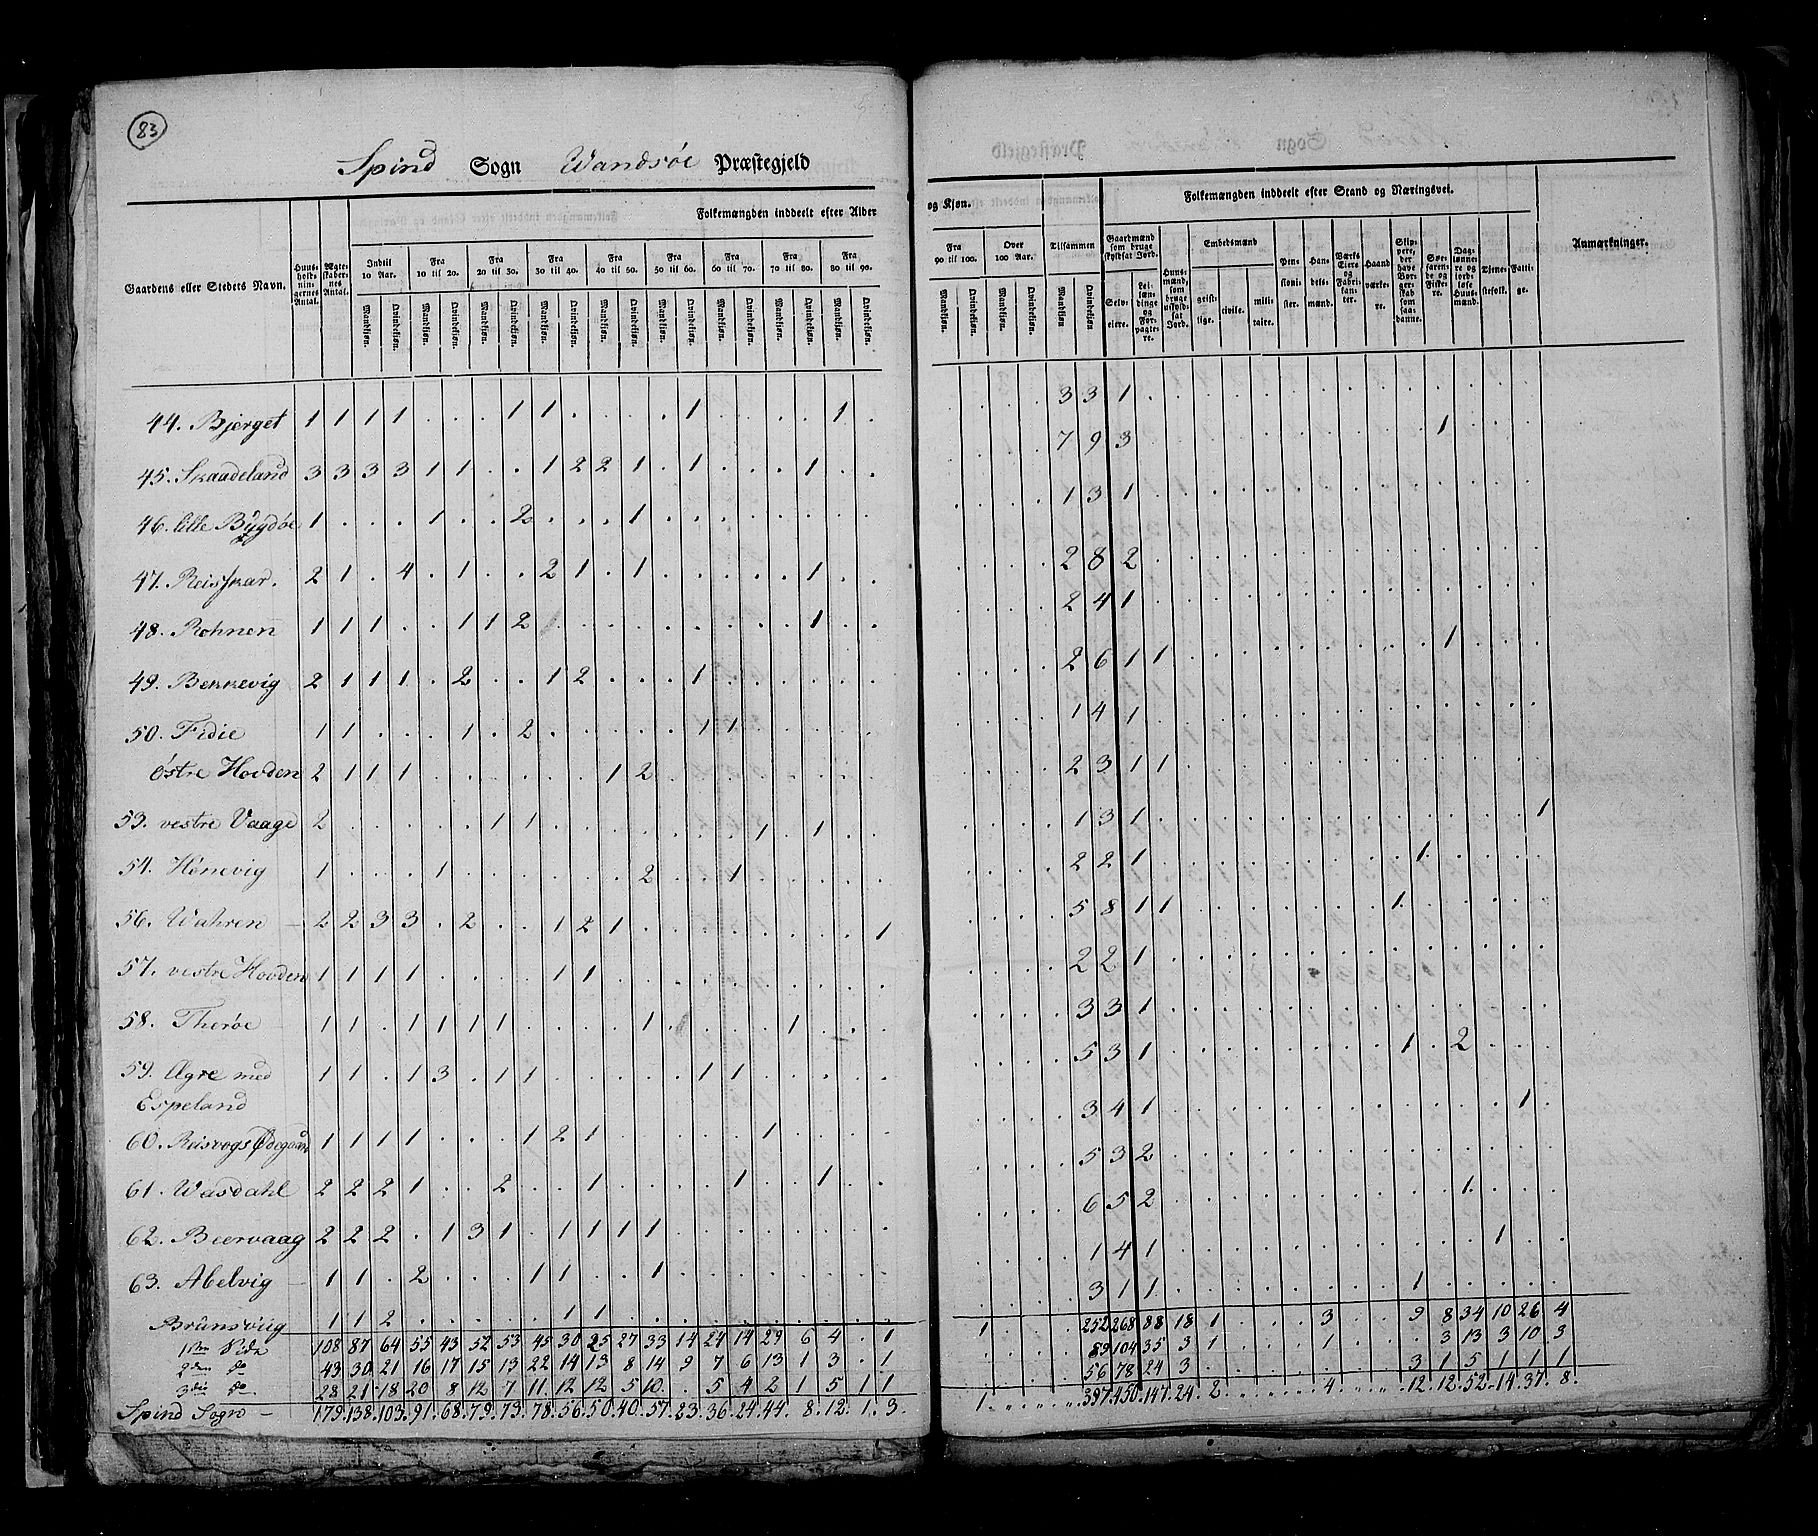 83
Spind Sogn Wandsøe Præstegjeld
Folkemængden inddeelt efter Alder og Kjøn. Folkemængden inddeelt efter Stand og Næringsvei.
Gaardens eller Stedets Navn. Huus-holdnin-gernes Antal. Ægte-skaber-nes Antal. Indtil 10 Aar. Fra 10 til 20. Fra 20 til 30. Fra 30 til 40. Fra 40 til 50. Fra 50 til 60. Fra 60 til 70. Fra 70 til 80. Fra 80 til 90. Fra 90 til 100. Over 100 Aar. Tilsammen Anmærkninger.
Mandkjøn. Qvindekjøn.
Gaardmænd som bruge skyldsat Jord. Selv-eiere. Lei-læn-dinge og For-pagte-re. Huus-mænd, som bruge uskyld-sat Jord. Embedsmænd geist-lige. civile. mili-taire. Pen-sioni-ster. Han-dels-mænd. Værks Eiere og Fabri-kan-ter. Haand-værke-re. Dag-lønne-re og jord-løse Huus-mænd. Tjene-stefolk. Fatti-ge.
44. Bjerget 1 1 1 1 . . . 1 1 . . . . 1 . . . . 1 . 3 3 1
45. Skaadeland 3 3 3 3 1 1 . . 1 2 2 1 . 1 . . . 1 . . 7 9 3 1
46. lille Bÿgdøe 1 . . . 1 . . 2 . . . 1 . . . . . . . . 1 3 1
47. Reisskar. 2 1 . 4 . 1 . . 2 1 . 1 . . . . . 1 . . 2 8 2
48. Rohnen 1 1 1 . . 1 1 2 . . . . . . . . . 1 . . 2 4 1
49. Bekkevig 2 1 1 1 . 2 . . 1 2 . . . 1 . . . . . . 2 6 1 1 1
50. Fidie 1 1 . . . 1 . 2 . . . . . 1 1 . . . . . 1 4 1
Østre Hovden 2 1 1 1 . . . . . . 1 2 . . . . . . . . 2 3 1 1
53. vestre Vaage 2 . . . . . 1 1 . . . . . . . 1 . 1 . . 1 3 1 1
54. Hønevig 1 . . . 1 . . . . . . 2 . . 1 . . . . . 2 2 1 1
56. Wahren 2 2 3 3 . 2 . . 1 2 1 . . . . . . . . 1 5 8 1 1 1
57. vestre Hovden 1 1 1 1 . . . . 1 1 . . . . . . . . . . 2 2 1
58. Therøe 1 1 . 1 1 1 1 . . . . 1 . . . . 1 . . . 3 3 1
59. Agre med 1 1 . 1 3 . 1 1 . . . . . 1 1 . . . . . 5 3 1 1 2
Espeland
60. Reisvogs Ødegaard 1 1 1 1 . . . 1 2 1 . . . . . 1 . . . . 3 4 1 1
61. Wasdahl 2 2 2 1 . . 2 . . 1 . . . . 1 . . 1 . . 5 3 2
62. Beervaag 2 2 2 . 1 3 1 . 1 1 1 1 . . . . . . . . 6 5 2 1
63. Abelvig 1 1 . 2 . . . 1 1 . . 1 . . . . . . . . 1 4 1 1
Brunsviig 1 1 2 . . . . . 1 1 . . . . . . . . . . 3 1 1 1
1ste Side 108 87 64 55 43 52 53 45 30 25 27 33 14 24 14 29 6 4 . 1 1 252 268 88 18 1 3 9 8 34 10 26 4
2den do 43 30 21 16 17 15 13 22 14 13 8 14 9 7 6 13 1 3 . 1 89 104 35 3 1 1 3 13 3 10 3
3die do 28 21 18 20 8 12 7 11 12 12 5 10 . 5 4 2 1 5 1 1 56 78 24 3 3 1 5 1 1 1
Spind Sogn 179. 138. 103. 91. 68. 79. 73. 78. 56. 50. 40. 57. 23. 36. 24. 44. 8. 12. 1. 3. 1. 397. 450. 147. 24. 2 4 12. 12. 52. 14. 37. 8.